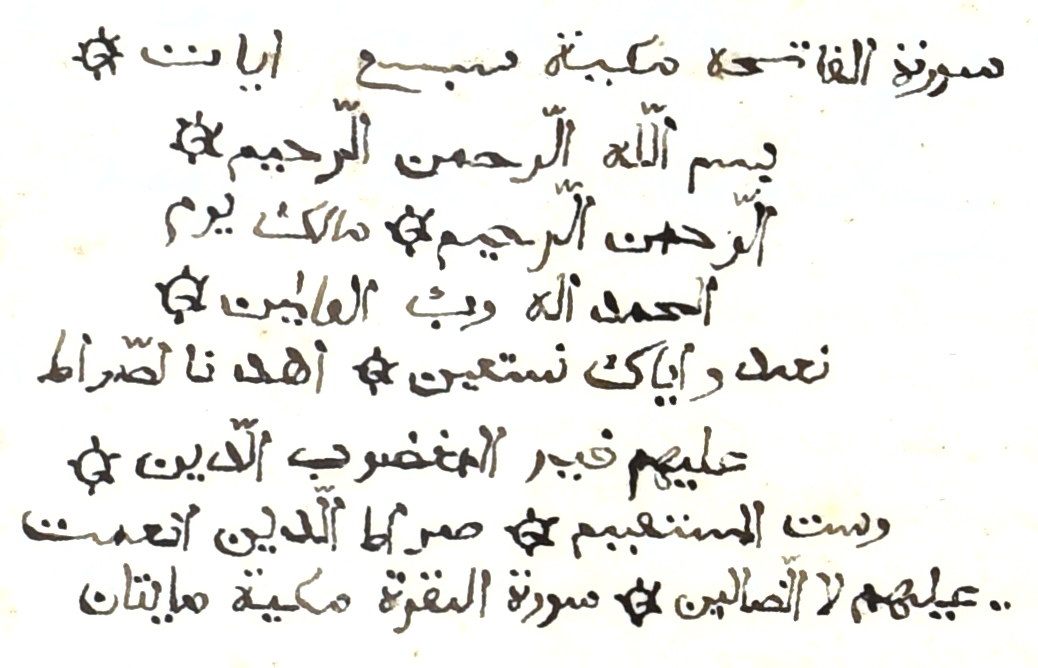 سورة الفاتحه مكية سبع ايات
بسم الّله الّرحمن الّرحيم
الّرحمن الّرحيم مالك يوم
الحمد اله ورب العالمين
نعمد و اياك نستعين اهد نا لصّراط
عليهم غير المغضوب الّدين
وست المستقيم صراط الّدين انعمت
عليهم لا الّضالين سورة البقرة مكية مايتان